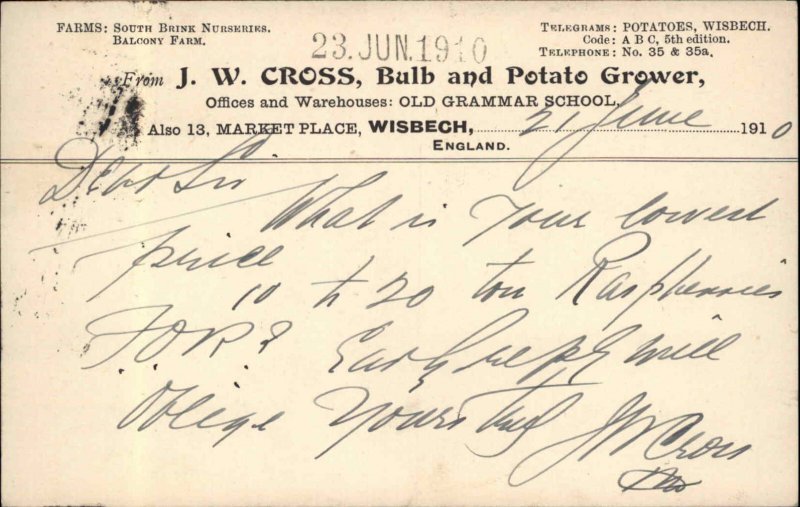 FARMS: SOUTH BRINK NURSERIES.
BALCONY FARM.
TELEGRAMS: POTATOES, WISBECH.
Code: A B C, 5th edition.
TELEPHONE: No. 35 & 35a.
23. JUN. 1910
From J. W. CROSS, Bulb and Potato Grower,
Offices and Warehouses: OLD GRAMMAR SCHOOL,
Also 13, MARKET PLACE, WISBECH, 21 June 1910
ENGLAND.
Dear Sir
What is your lowest
price
10 to 20 ton Raspberries
F.O.R.? Early reply will
oblige Yours truly J W Cross